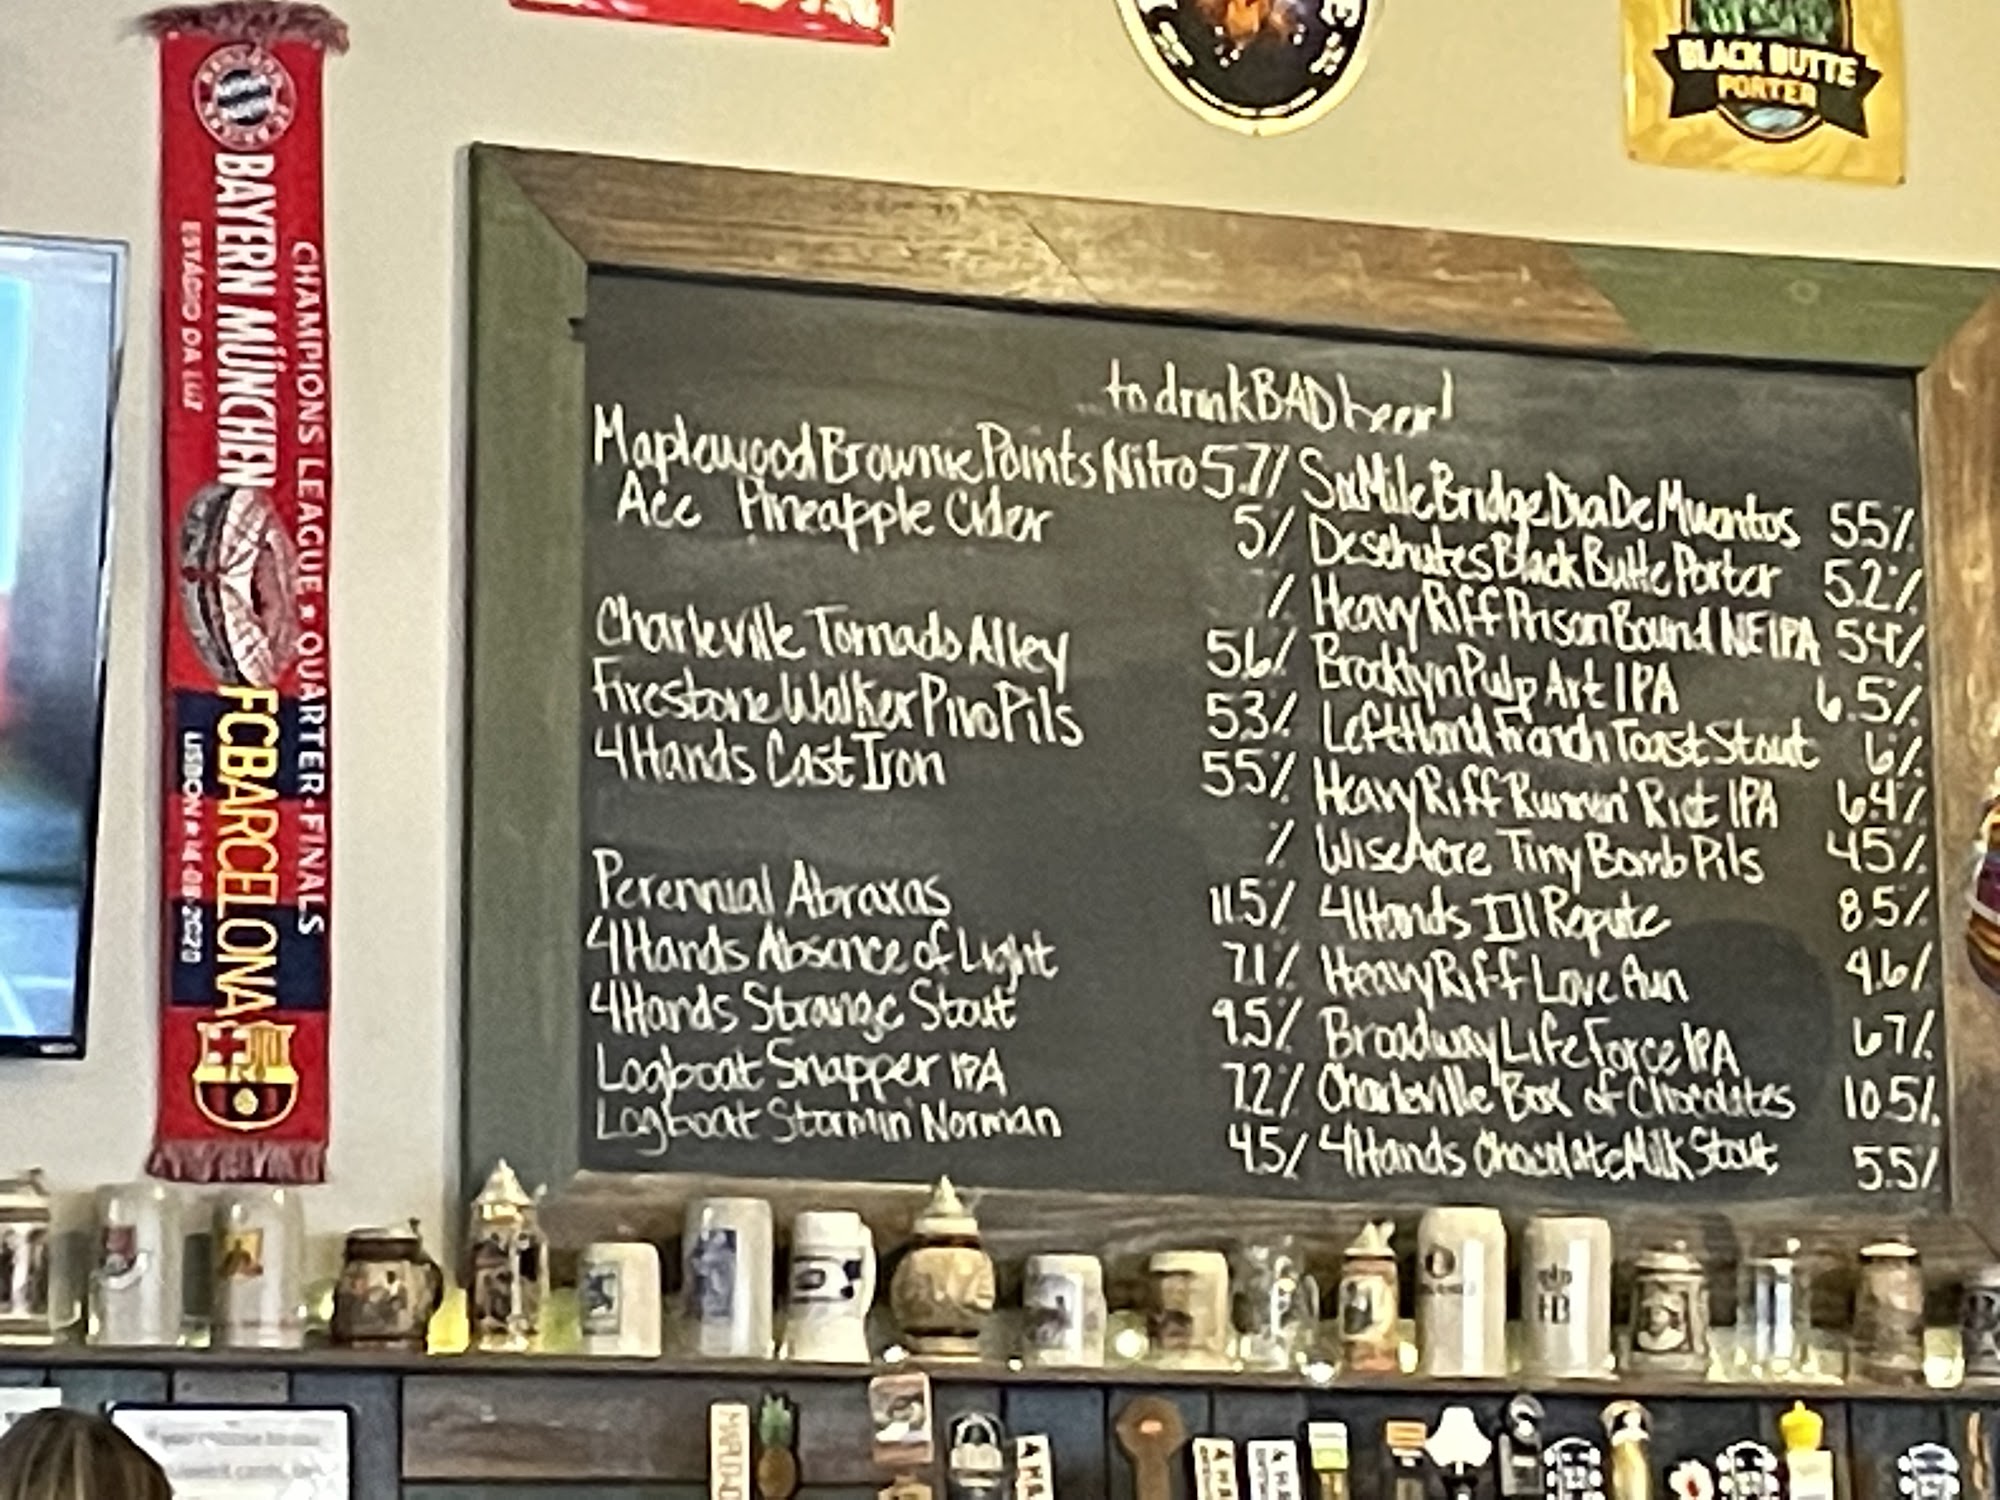 BLACK BUTTE
PORTER
BAYERN MÜNCHEN
ESTÁDIO DA LUZ
CHAMPIONS LEAGUE • QUARTER-FINALS
FC BARCELONA
LISBON • 14-08-2020
to drink BAD beer!
Maplewood Brownie Points Nitro 5.7%
Ace Pineapple Cider 5%
%
Charleville Tornado Alley 5.6%
Firestone Walker Pivo Pils 5.3%
4 Hands Cast Iron 5.5%
%
Perennial Abraxas 11.5%
4 Hands Absence of Light 7.1%
4 Hands Strange Stout 9.5%
Logboat Snapper IPA 7.2%
Logboat Stormin' Norman 4.5%
Six Mile Bridge Dia De Muantos 5.5%
Deschutes Black Butte Porter 5.2%
Heavy Riff Prison Bound NEIPA 5.4%
Brooklyn Pulp Art IPA 6.5%
Left Hand French Toast Stout 6%
Heavy Riff Runnin' Riot IPA 6.4%
Wise Acre Tiny Bomb Pils 4.5%
4 Hands Ill Repute 8.5%
Heavy Riff Love Gun 4.6%
Broadway Life Force IPA 6.7%
Charleville Box of Chocolates 10.5%
4 Hands Chocolate Milk Stout 5.5%
HB